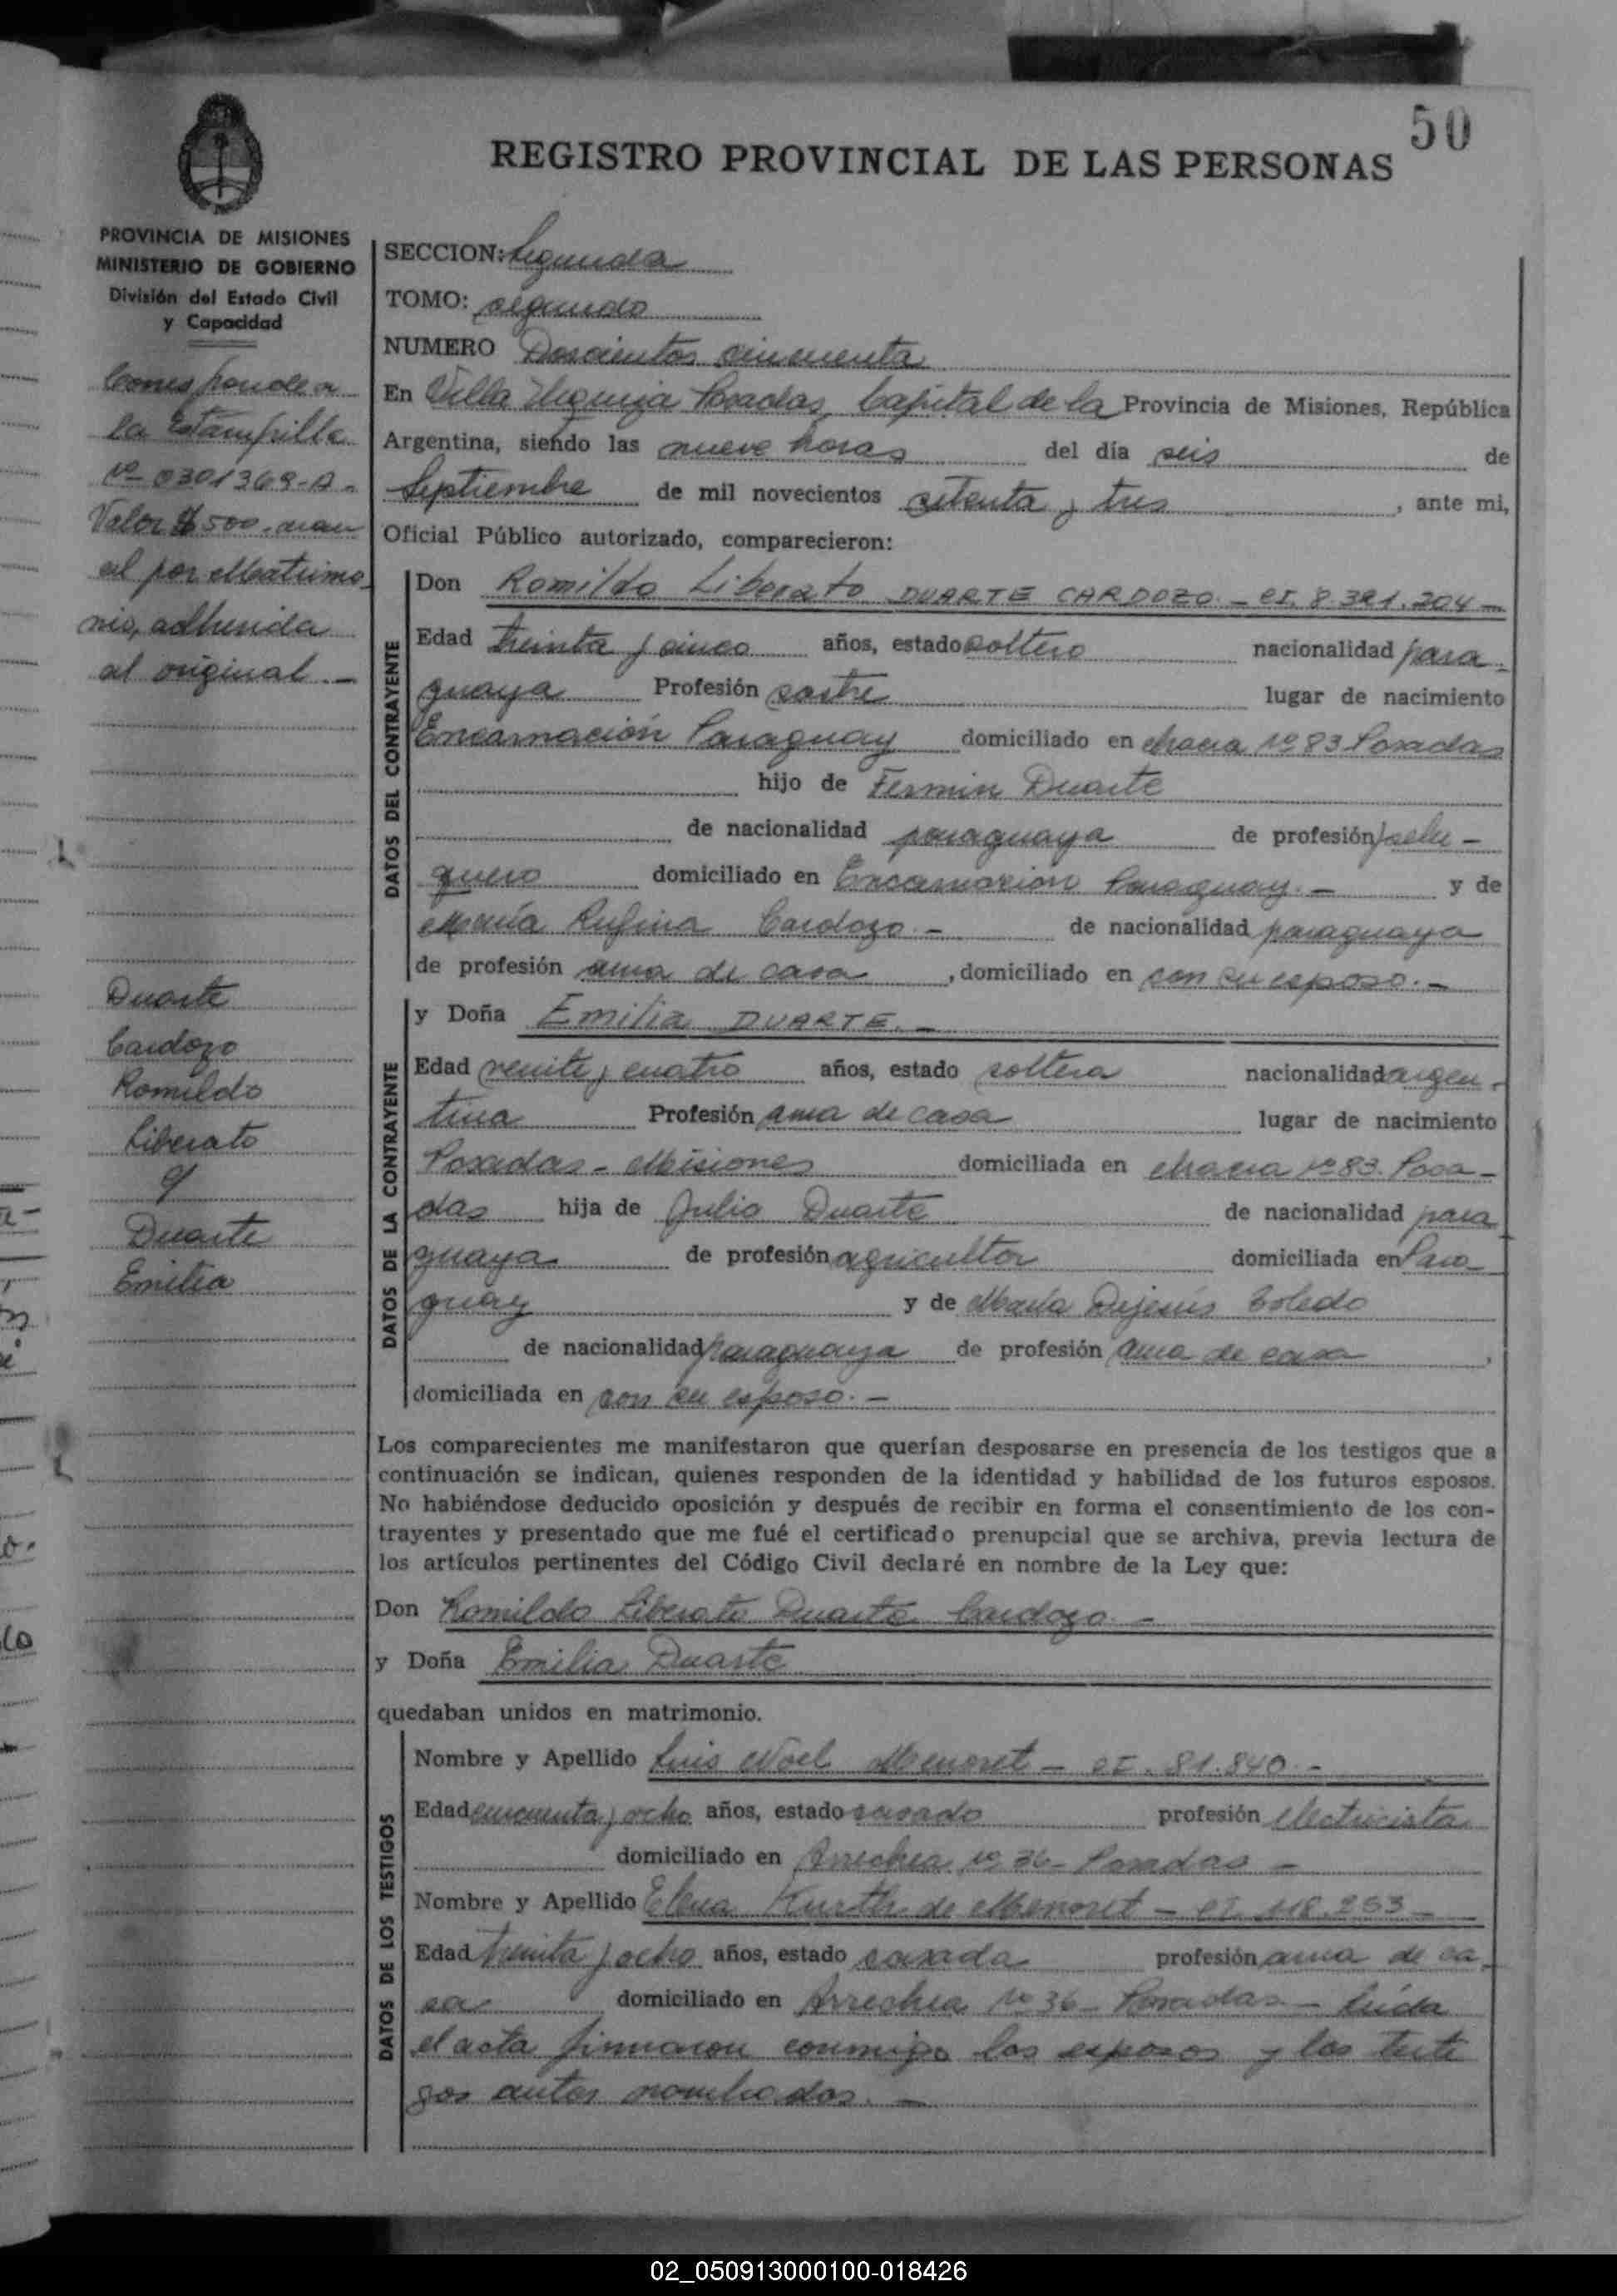 50
REGISTRO PROVINCIAL DE LAS PERSONAS
PROVINCIA DE MISIONES
MINISTERIO DE GOBIERNO
División del Estado Civil
y Capacidad
Corresponde a
la Estampilla
Nº 0301369-A.
Valor $500.
al por Matrimo-
nio, adherida
al original.-
Duarte
Cardozo
Romildo
Liberato
c/
Duarte
Emilia
SECCION: Segunda
TOMO: segundo
NUMERO Doscientos cincuenta
En Villa Urquiza Posadas, Capital de la Provincia de Misiones, República
Argentina, siendo las nueve horas del día seis de
Septiembre de mil novecientos setenta y tres, ante mi,
Oficial Público autorizado, comparecieron:
DATOS DEL CONTRAYENTE
Don Romildo Liberato DUARTE CARDOZO.- CI. 8.321.204-
Edad treinta y cinco años, estado soltero nacionalidad para-
guaya Profesión sastre lugar de nacimiento
Encarnación Paraguay domiciliado en chacra Nº 83 Posadas
hijo de Fermin Duarte
de nacionalidad paraguaya de profesión pelu-
quero domiciliado en Encarnacion Paraguay.- y de
María Rufina Cardozo.- de nacionalidad paraguaya
de profesión ama de casa, domiciliado en con su esposo.-
DATOS DE LA CONTRAYENTE
y Doña Emilia DUARTE.-
Edad veinte y cuatro años, estado soltera nacionalidad argen-
tina Profesión ama de casa lugar de nacimiento
Posadas - Misiones domiciliada en chacra Nº 83. Posa-
das hija de Julio Duarte de nacionalidad para
guaya de profesión agricultor domiciliada en Para-
guay y de María Dejesús Toledo
de nacionalidad paraguaya de profesión ama de casa,
domiciliada en con su esposo.-
Los comparecientes me manifestaron que querían desposarse en presencia de los testigos que a
continuación se indican, quienes responden de la identidad y habilidad de los futuros esposos.
No habiéndose deducido oposición y después de recibir en forma el consentimiento de los con-
trayentes y presentado que me fué el certificado prenupcial que se archiva, previa lectura de
los artículos pertinentes del Código Civil declaré en nombre de la Ley que:
Don Romildo Liberato Duarte Cardozo.-
y Doña Emilia Duarte
quedaban unidos en matrimonio.
DATOS DE LOS TESTIGOS
Nombre y Apellido Luis Noel Menoret - CI. 81.840.-
Edad cincuenta y ocho años, estado casado profesión electricista
domiciliado en Arrechea Nº 36 - Posadas -
Nombre y Apellido Elena Kurth de Menoret - CI 118.253-
Edad treinta y ocho años, estado casada profesión ama de ca-
sa domiciliado en Arrechea Nº 36 - Posadas - Leída
el acta firmaron conmigo los esposos y los testi
gos antes nombrados.-
02_050913000100-018426